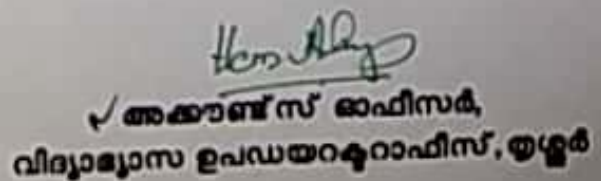 അക്കൗണ്ട്സ് ഓഫീസർ,
വിദ്യാഭ്യാസ ഉപഡയറക്ടറാഫീസ്, തൃശ്ശൂർ